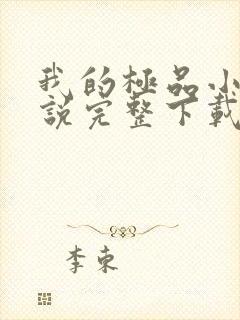 我的極品小
說完整下載
李東